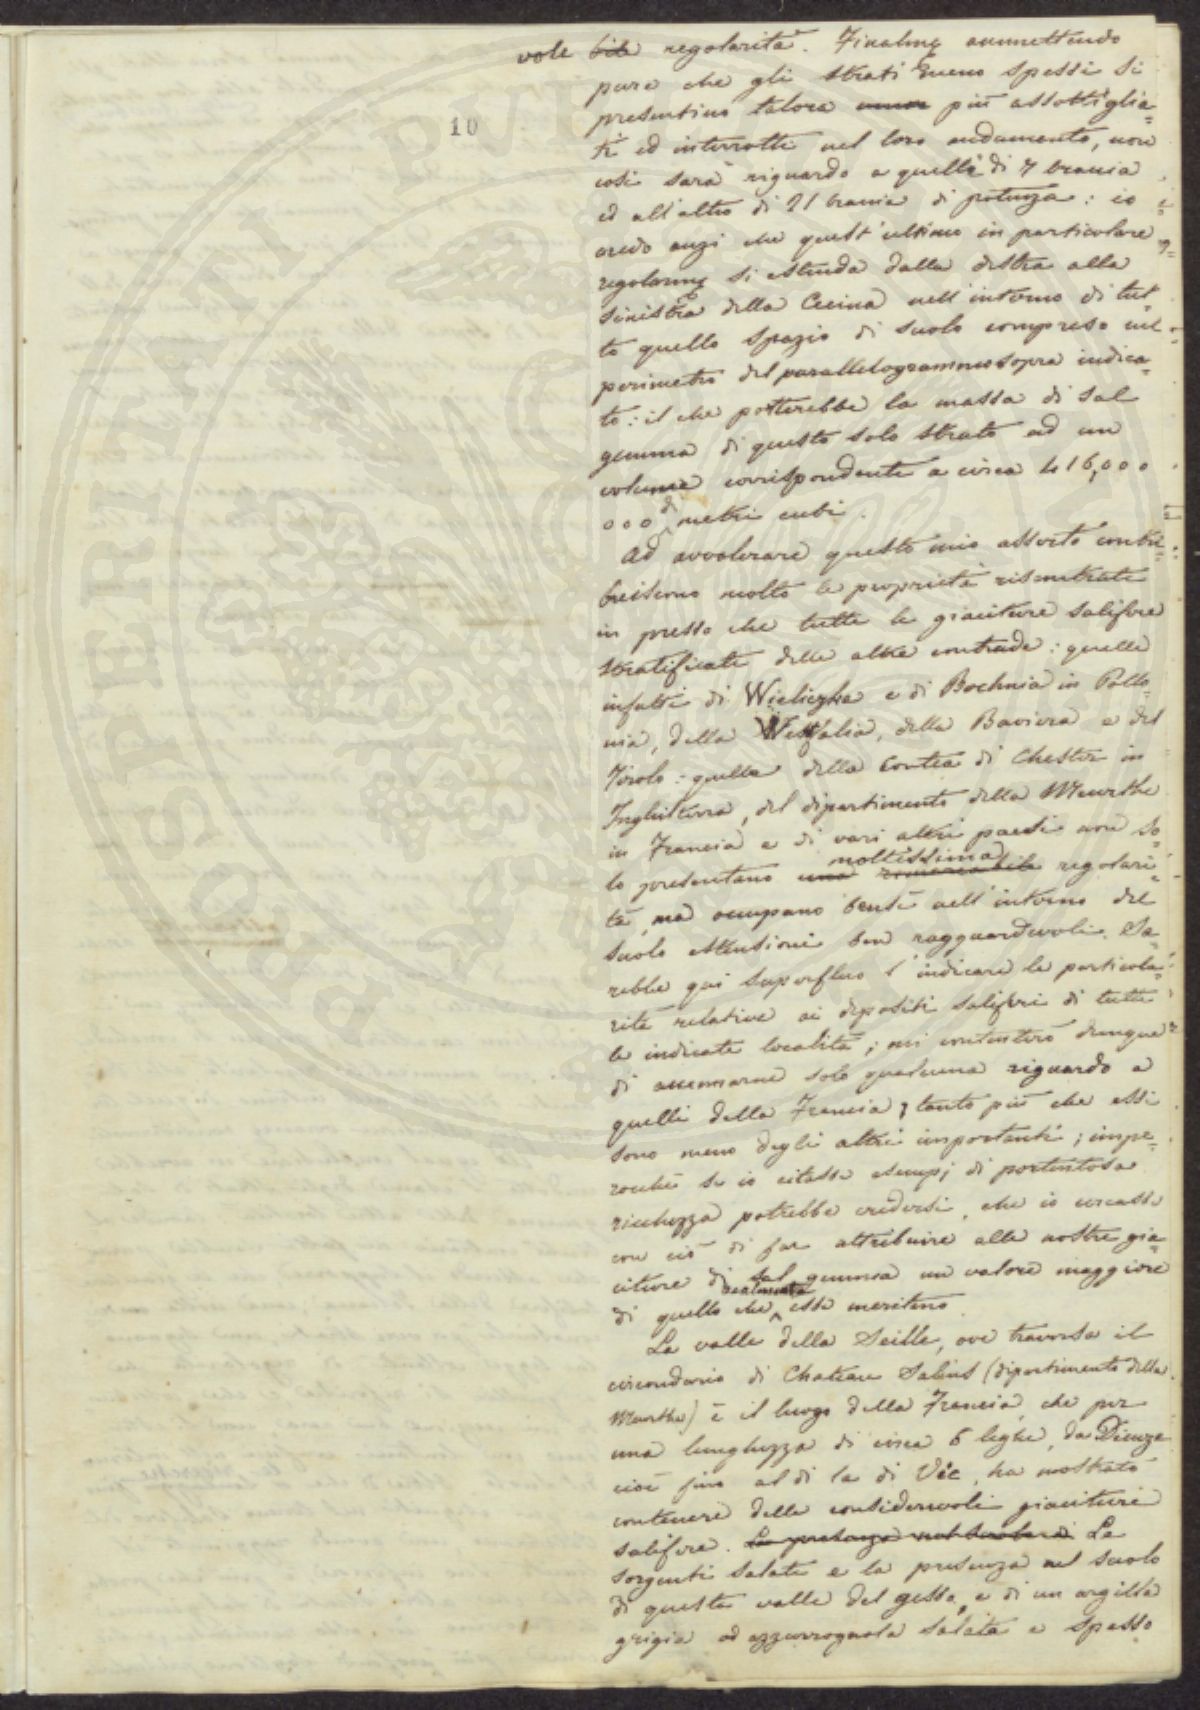 vole bile regolarità. Finalmẹ ammettendo
pure che gli strati meno spessi si
presentino talora più assottiglia=
ti ed interrotti nel loro andamento, non
così sarà riguardo a quelli di 7 braccia
ed all'altro di 21 braccia di potenza: io
credo anzi che quest'ultimo in particolare
regolarmẹ si estenda dalla destra alla
sinistra della Cecina nell'interno di tut=
to quello spazio di suolo compreso nel
perimetro del parallelogrammo sopra indica=
to: il che porterebbe la massa di sal
gemma di questo solo strato ad un
volume corrispondente a circa 416,000
000 di metri cubi.
Ad avvalorare questo mio asserto contri=
buiscono molto le proprietà riscontrate
in presso che tutte le giaciture salifere
stratificate delle altre contrade: quelle
infatti di Wieliczka e di Bochnia in Pollo=
nia, della Westfalia, della Baviera e del
Tirolo: quelle della Contea di Chester in
Inghilterra, del dipartimento della Meurthe
in Francia e di vari altri paesi non so=
lo presentano una rimarcabile moltissima regolari=
tà, ma occupano bensì nell'interno del
suolo estensioni ben ragguardevoli. Sa=
rebbe qui superfluo l'indicare le particola=
rità relative ai depositi saliferi di tutte
le indicate località; mi contenterò dunque
di accennarne solo qualcuna riguardo a
quelli della Francia, tanto più che essi
sono meno degli altri importanti; impe=
rocchè se io citassi esempj di portentosa
ricchezza potrebbe credersi, che io cercassi
con ciò di far attribuire alle nostre gia=
citure di sal gemma un valore maggiore
di quello che realmente esse meritino.
La valle della Seille, ove traversa il
circondario di Chateau Salins (dipartimento della
Meurthe) è il luogo della Francia, che per
una lunghezza di circa 6 leghe, da Dieuze
cioè fino al di là di Vic, ha mostrato
contenere delle considerevoli giaciture
salifere. La presenza nel suolo di Le
sorgenti salate e la presenza nel suolo
di questa valle del gesso, e di un argilla
grigia od azzurrognola salata e spesso
10